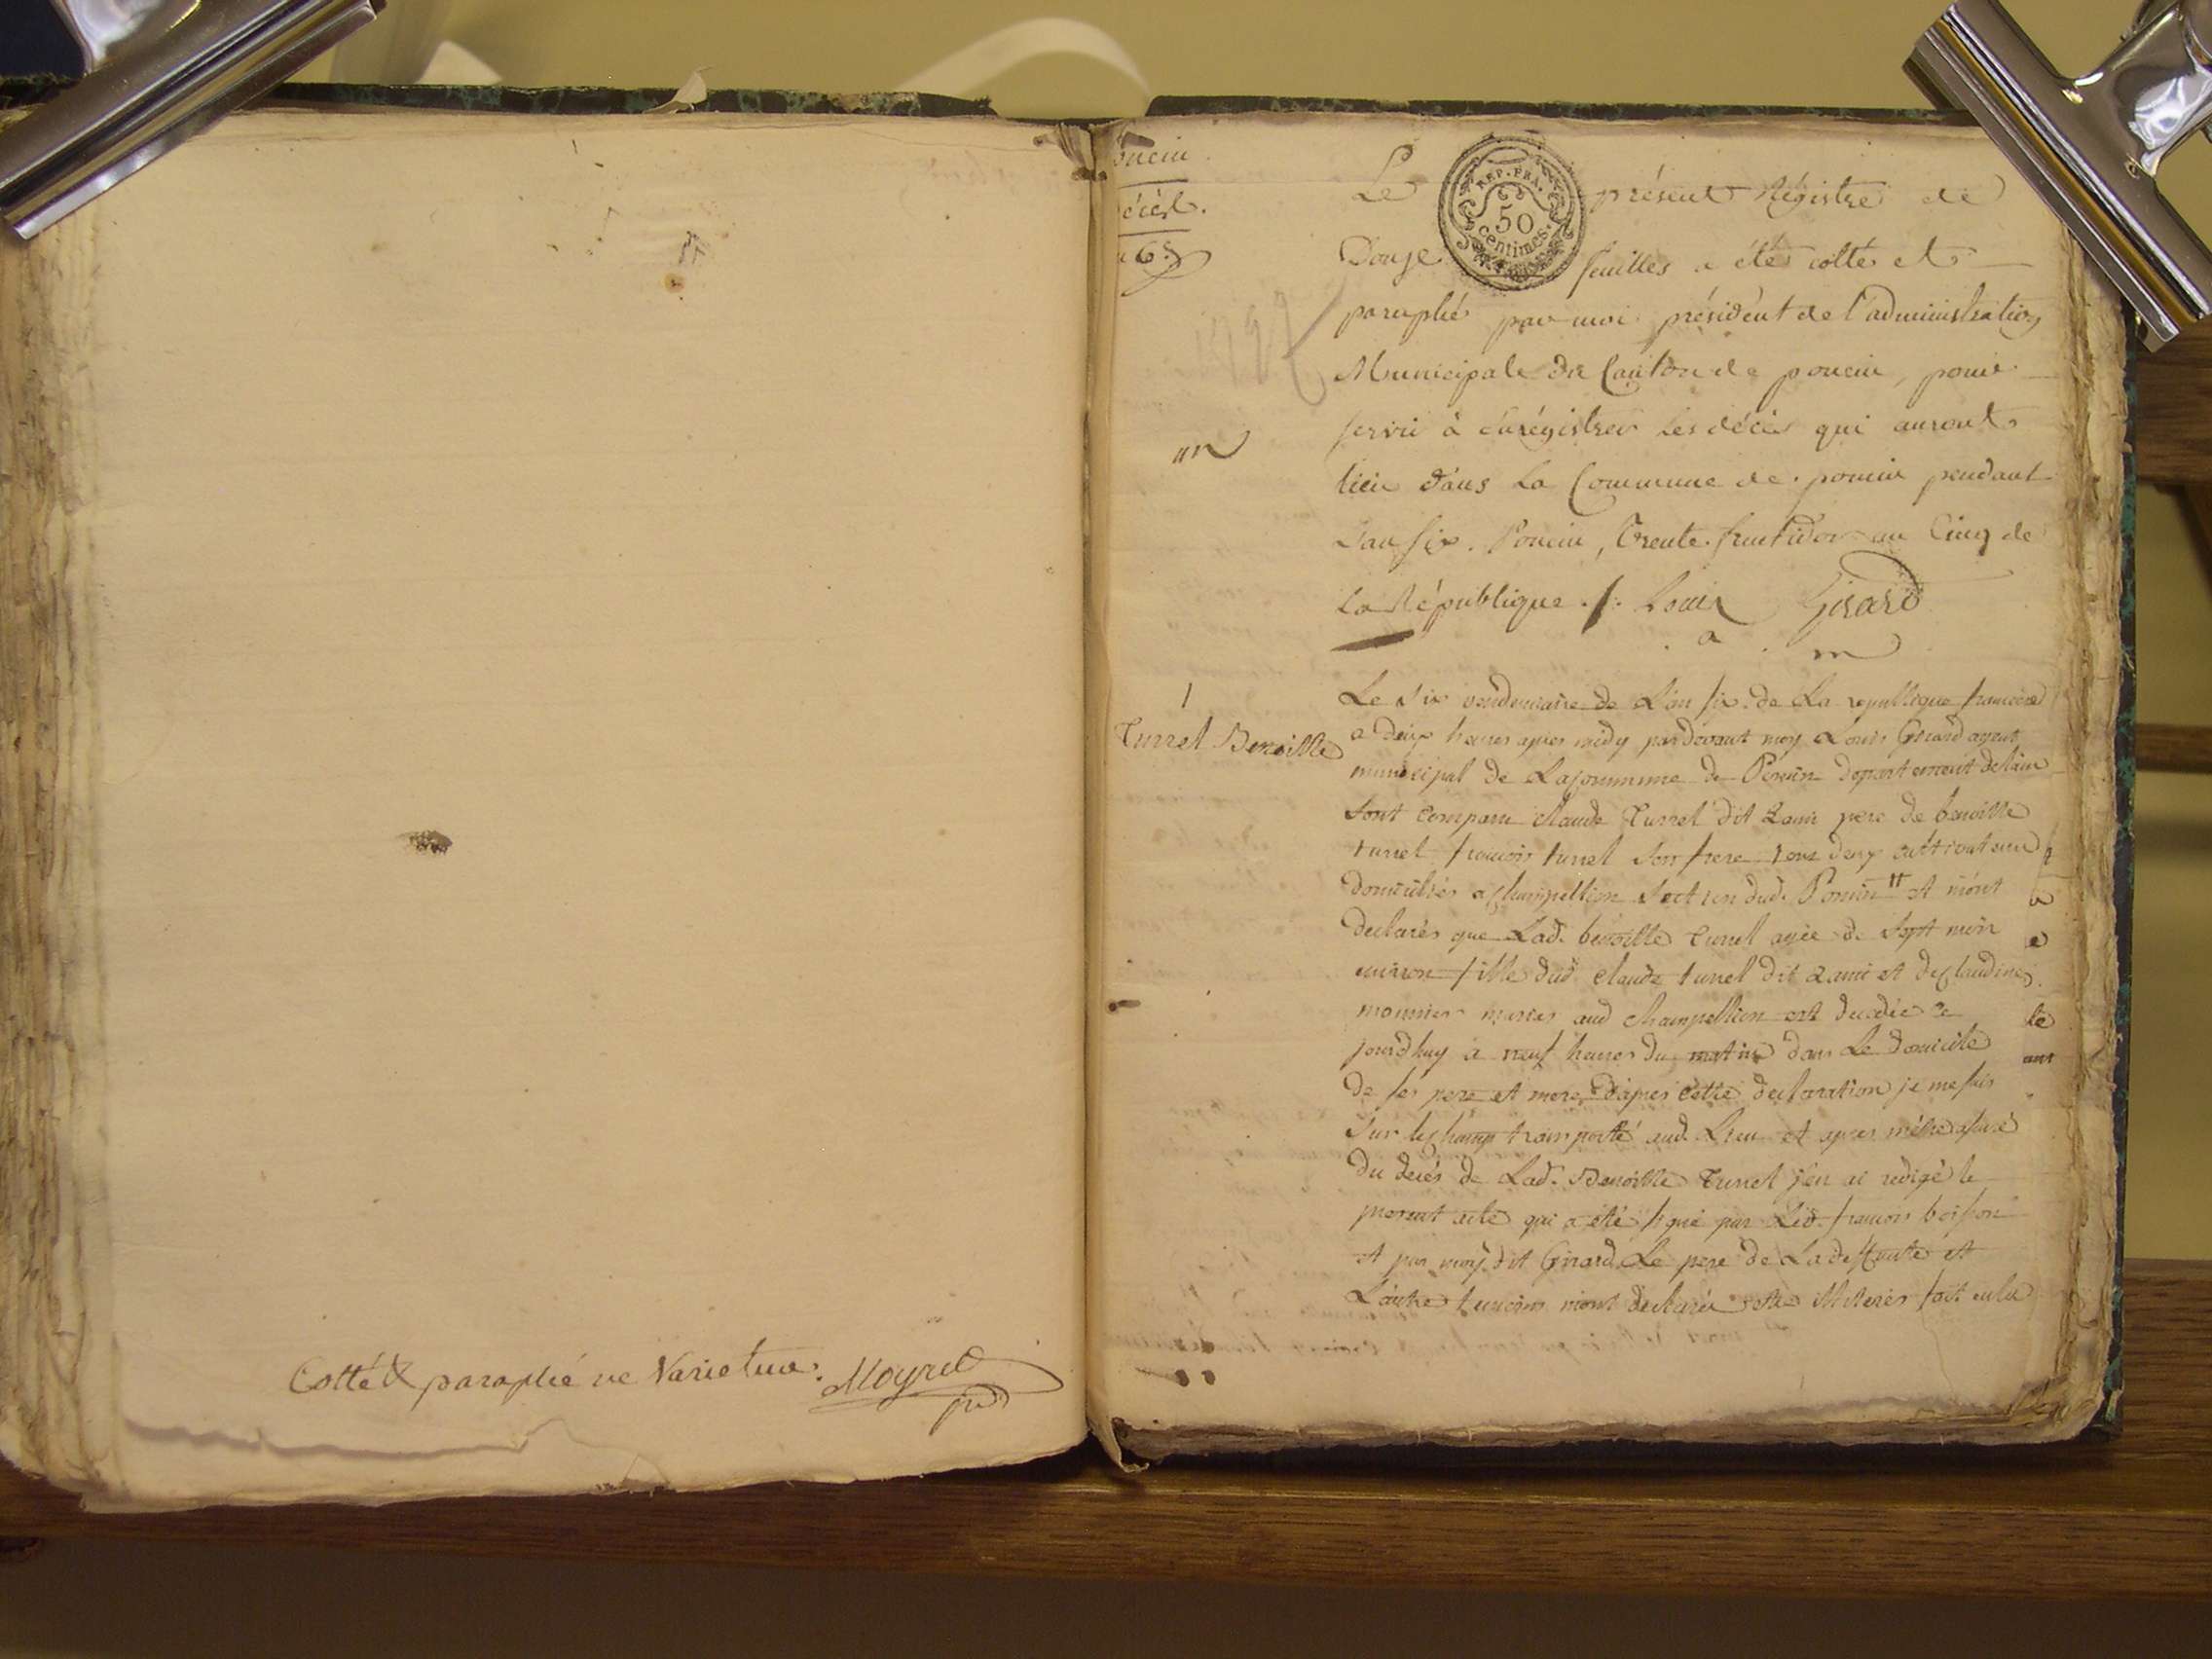 Cotté & paraphé ne Varietur. Moyret
oncin
écès.
n 6.
1797
un
Le présent Régistre de
Douze feuilles a été cotté et
paraphé par moi président de l'administration
Municipale du Canton de poncin, pour
servir à énrégistrer les décès qui auront
lieu dans la Commune de poncin pendant
l'an six. Poncin, Trente fructidor an Cinq de
la République ./. Louis Girard
a m
REP. FRA.
50
centimes.
1
Turrel Benoitte
Le six vendemiaire de L'an six de La republique francoise
a deux heures apres midy pardevant moy Louis Girard agent
municipal de Lacommune de Poncin departement delain
sont comparu claude Turrel dit Lami pere de benoitte
turrel francois turrel son frere tous deux cultivateurs
domiciliés a Champeillon section dud. Poncin et m'ont
declarés que Lad. benoitte turrel agée de sept mois
environ fille dud claude turrel dit Lami et declaudine
monnier mariés aud champeillon est decedée ce
jourdhuy a neuf heures du matin dans Le domicile
de ses pere et mere, d'apres cette declaration je me suis
sur lechamp transporté aud. Lieu et apres m'être assuré
du decés de Lad. Benoitte Turrel j'en ai redigé le
present acte qui a été signé par Led. francois boisson
et par moy dit Girard Le pere de La deffunte et
L'autre temoins m'ont declaré être illiterés fait aulu
le
ant